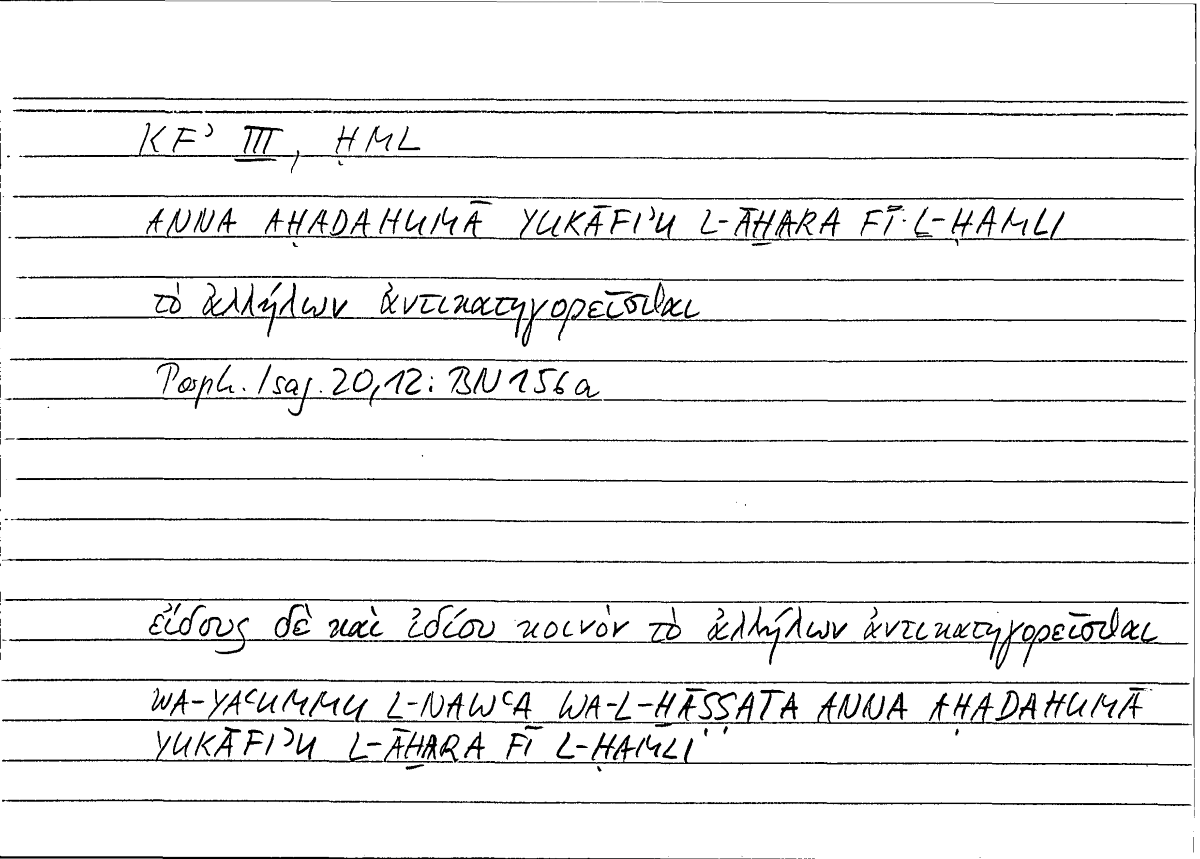 KFʾ III, ḤML
ANNA AḤADAHUMĀ YUKĀFIʾU L-ĀH̱ARA FĪ L-ḤAMLI
τὸ ἀλλήλων ἀντικατηγορεῖσθαι
Porph. Isag. 20,12: BN 156a
εἴδους δὲ καὶ ἰδίου κοινὸν τὸ ἀλλήλων ἀντικατηγορεῖσθαι
WA-YAʿUMMU L-NAWʿA WA-L-H̱ĀṢṢATA ANNA AḤADAHUMĀ
YUKĀFIʾU L-ĀH̱ARA FĪ L-ḤAMLI